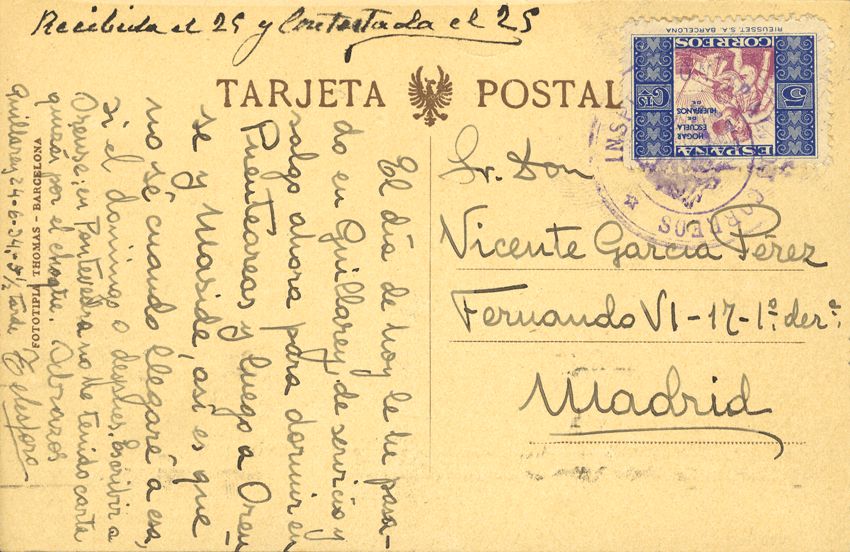 Recibida el 25 y Contestada el 25
TARJETA POSTAL
RIEUSSET, S.A. BARCELONA
CORREOS
5 Cts
HOGAR
ESCUELA
DE
HUERFANOS
ESPAÑA
INSP
CORREOS
Sr. Don
Vicente Garcia Perez
Fernando VI-17-1º. der.ª
Madrid
El día de hoy le he pasa-
do en Guillarey de servicio y
salgo ahora para dormir en
Puenteareas y luego a Oren-
se y Maside, así es que
no sé cuando llegaré a esa,
si el domingo o después. Escribir a
Orense: en Pontevedra no he tenido carta
quizás por el choque. Abrazos
Guillarey 24-6-34,- 5½ tarde, Telesforo
FOTOTIPIA THOMAS - BARCELONA